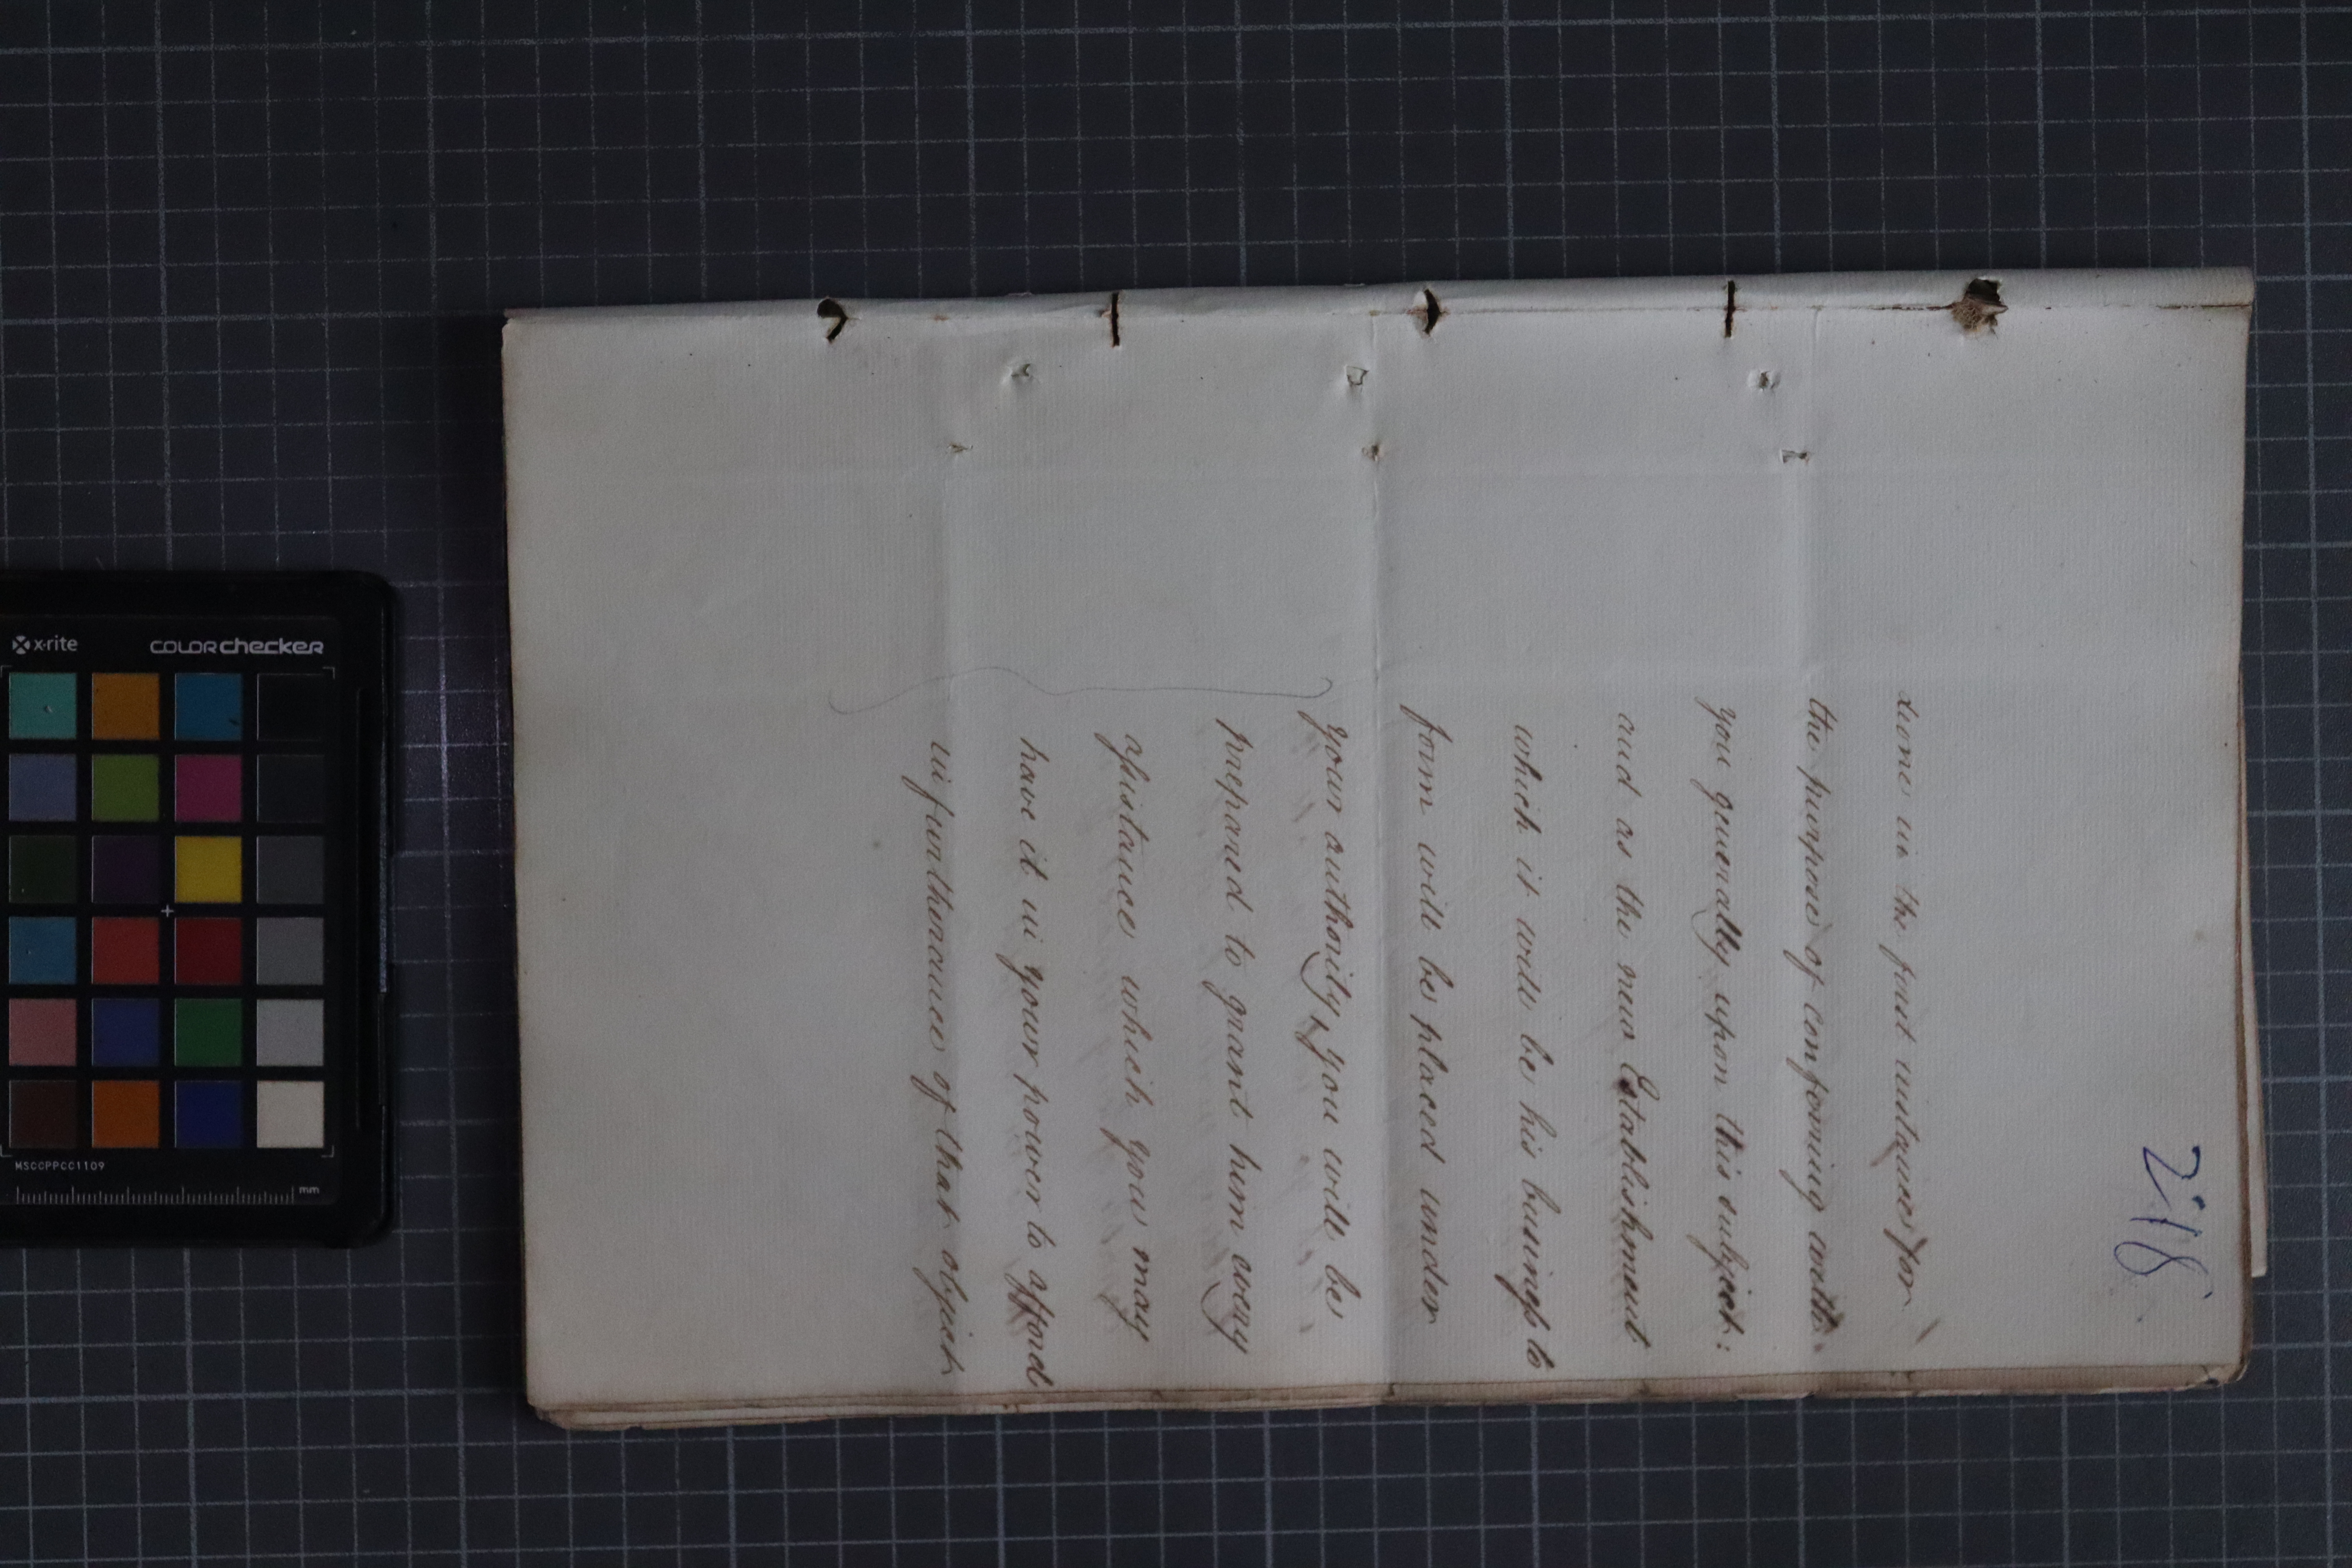 218
Leone in the first instance for
the purpose of conferring with
you generally upon this subject:
and as the new Establishment
which it will be his business to
form will be placed under
your authority, you will be
prepared to grant him every
assistance which you may
have it in your power to afford
in furtherance of that object
x·rite
COLORchecker
MSCCPPCC1109
mm